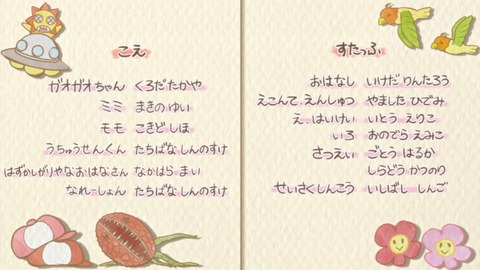 こえ
ガオガオちゃん くろだ たかや
ミミ まきの ゆい
モモ こきど しほ
うちゅうせんくん たちばな しんのすけ
はずかしがりやな おはなさん なかはら まい
なれーしょん たちばな しんのすけ
すたっふ
おはなし いけだ りんたろう
えこんて、えんしゅつ やました ひでみ
え、はいけい いとう えりこ
いろ おのでら えみこ
さつえい ごとう はるか
しらどう かつのり
せいさくしんこう いしばし しんご